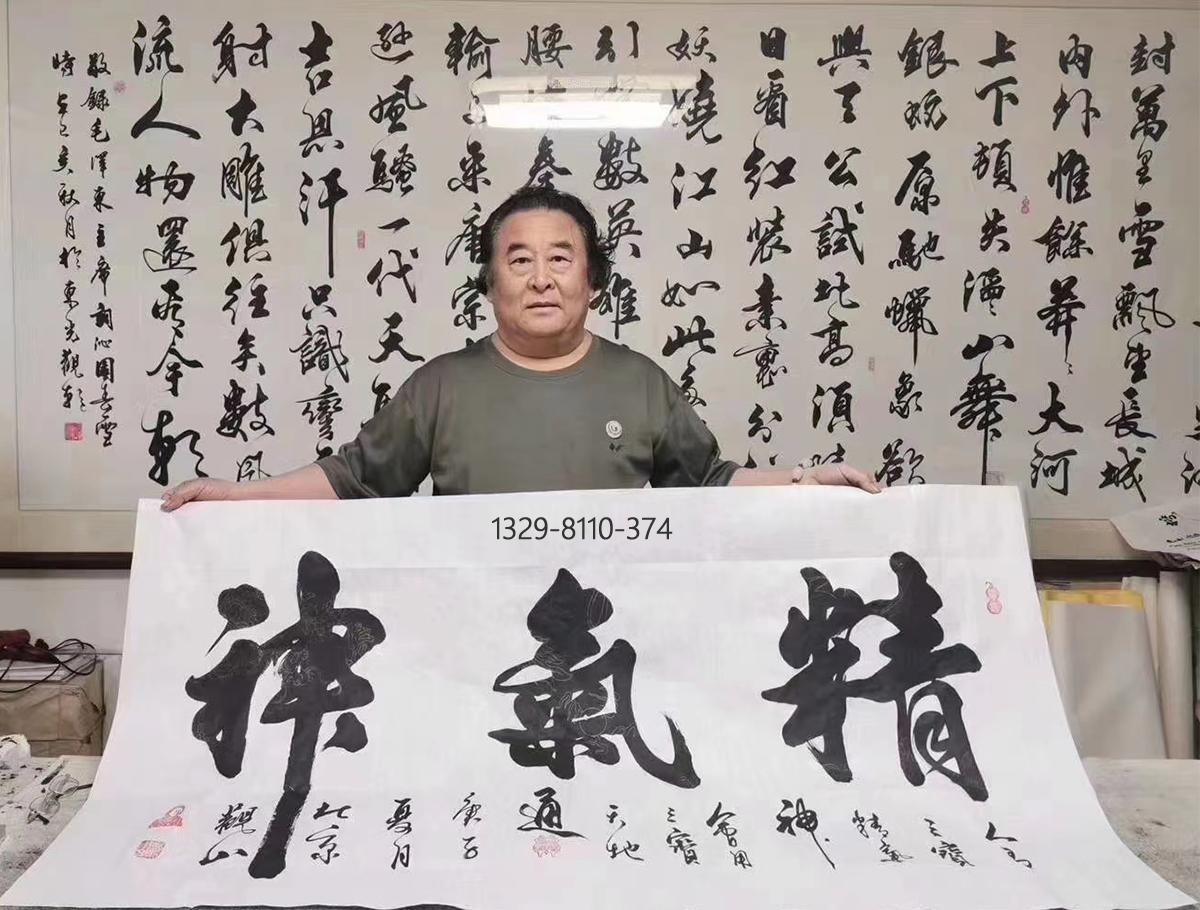 封萬里雪飄望長城
内外惟餘莽莽大河
上下頓失滔滔山舞
銀蛇原馳蠟象欲
與天公試比高須晴
日看紅裝素裹分外
妖嬈江山如此多
引 數英雄
腰
輸 采唐宗
遜風騷一代天
吉思汗只識彎
射大雕俱往矣數風
流人物還看今朝
敬錄毛澤東主席詞沁園春雪
時在己亥秋月於東
1329-8110-374
精氣神
人有
三寶
精氣
神
會用
三寶
天地
通
庚子
夏月
北京
觀山